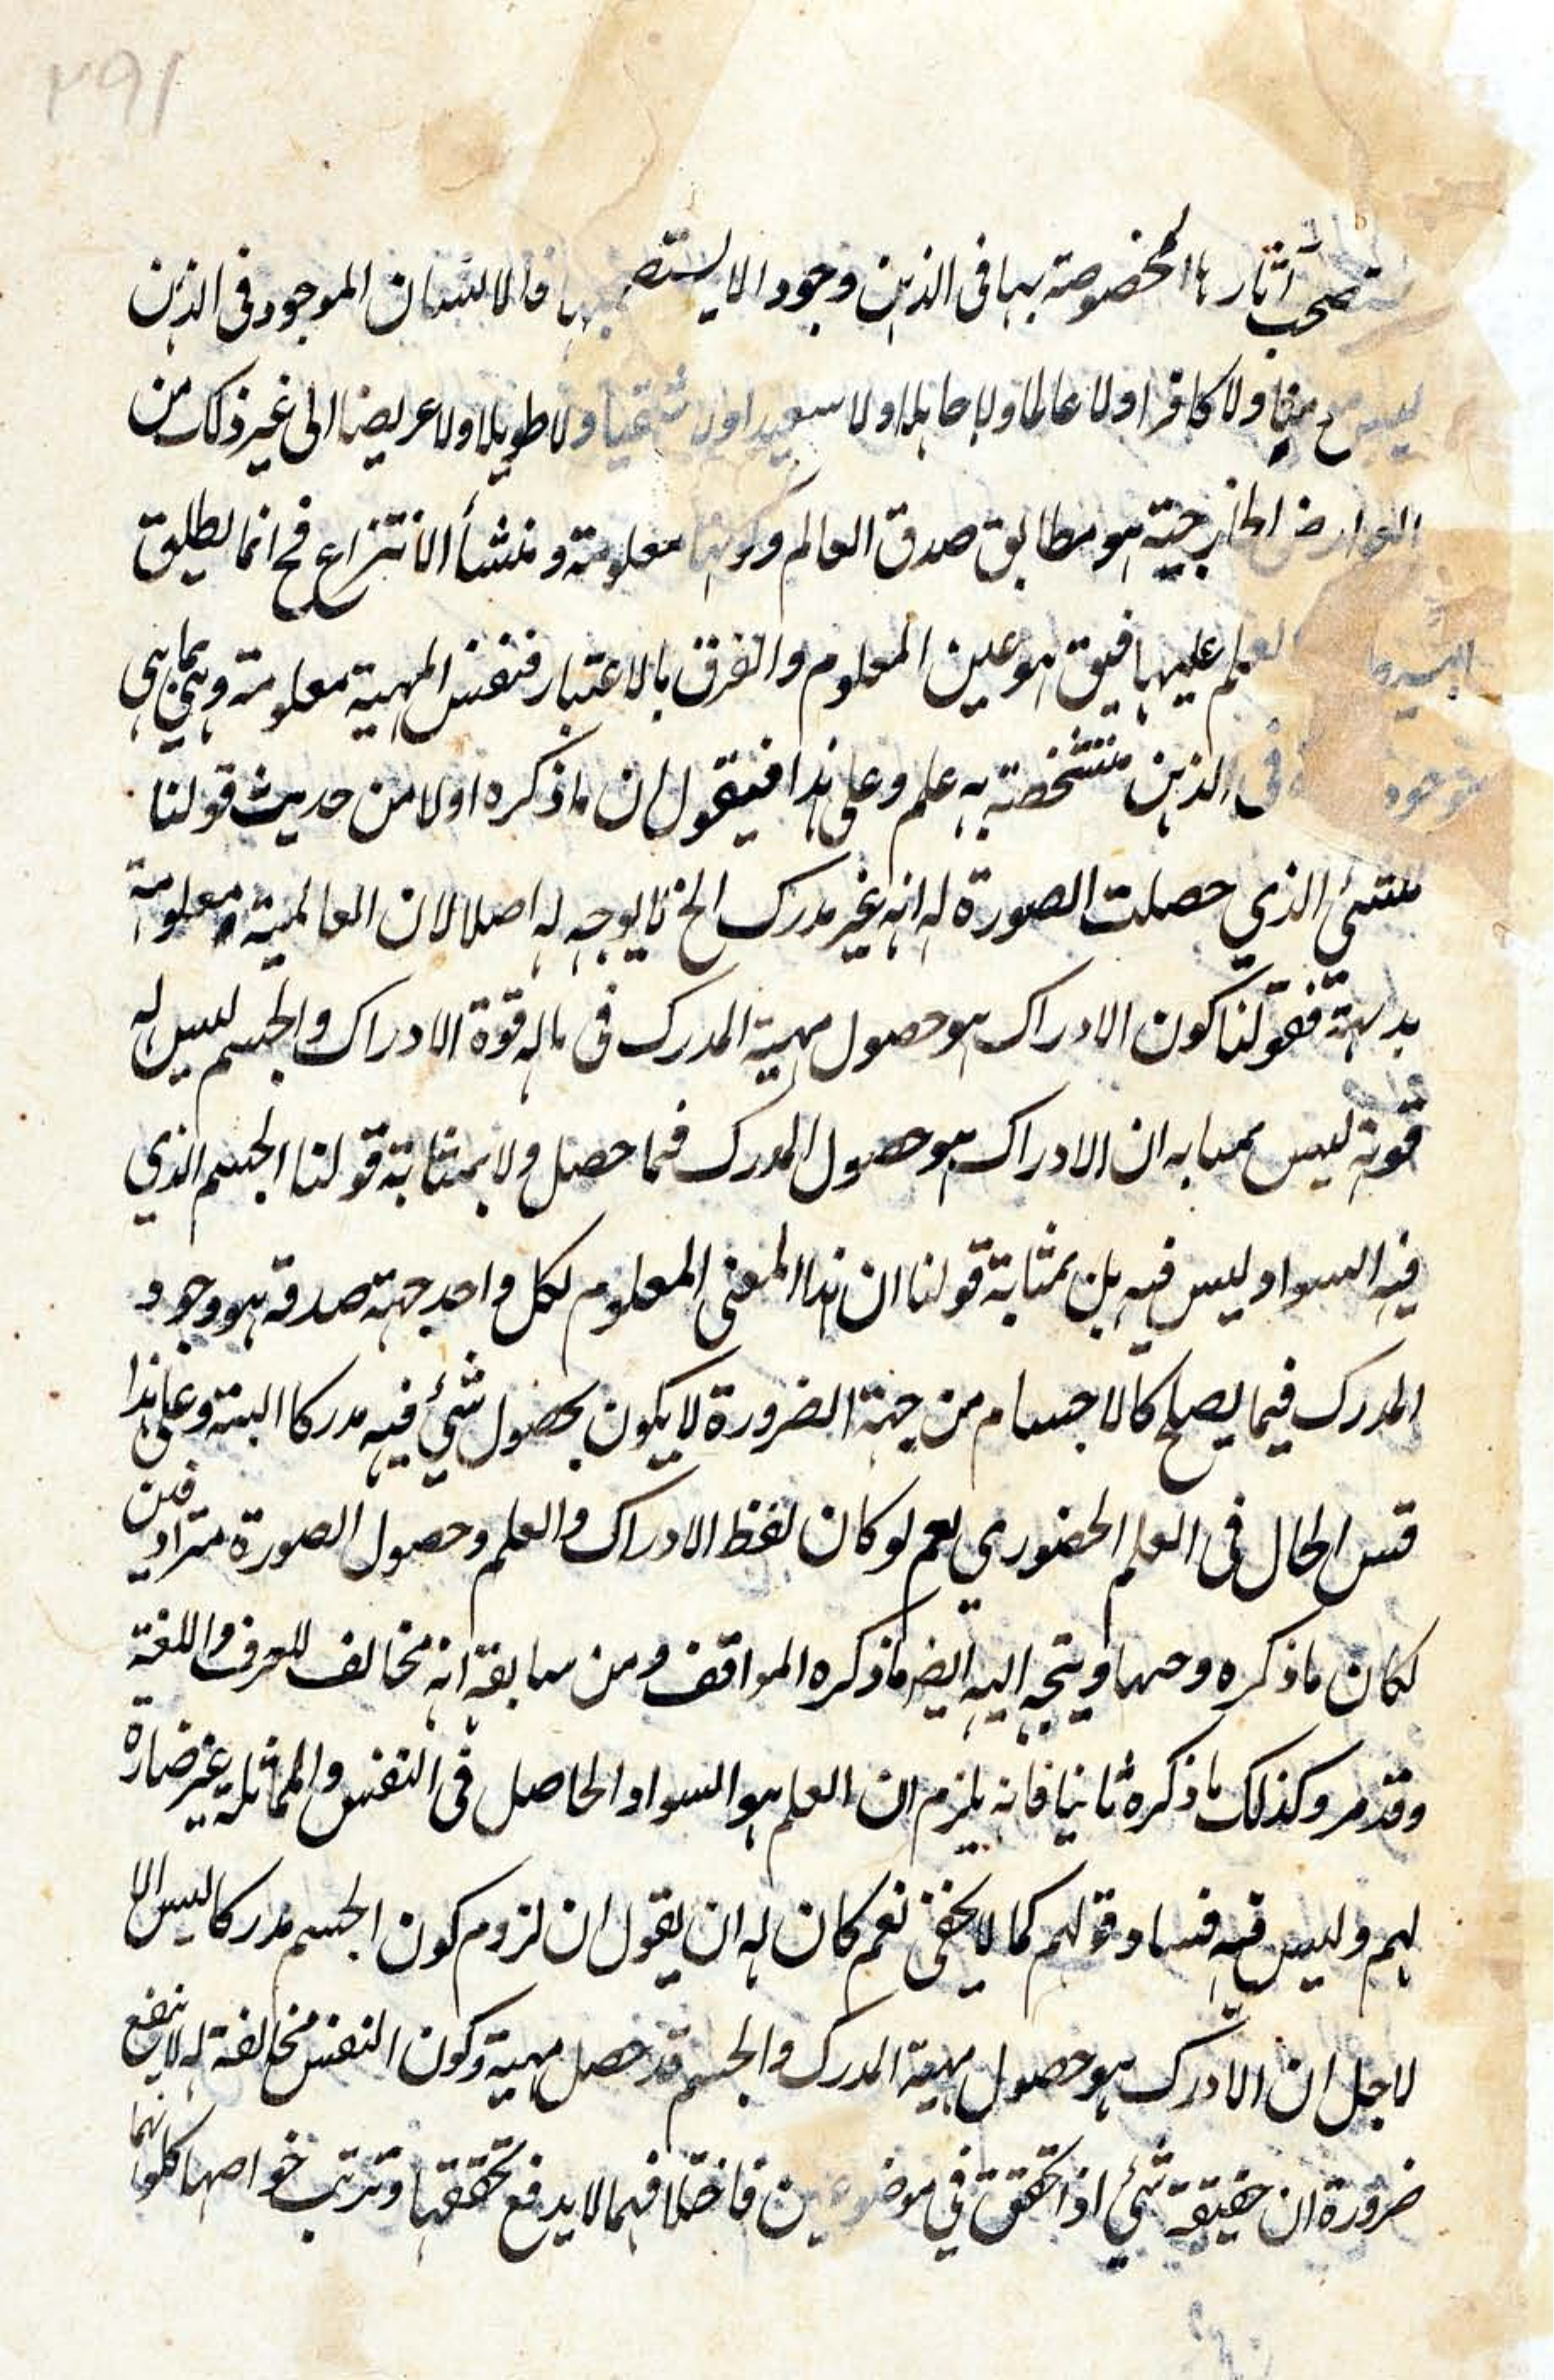 ٢٩١
آثارها المخصوصة بها فى الذهن وجود الا يستصحبها فالانسان الموجود فى الذهن
ليس مؤمنا ولا كافرا ولا عالما ولا جاهلا ولا سعيدا ولا شقيا ولا طويلا ولا عريضا الى غير ذلك من
العوارض الخارجية هو مطابق صدق العالم وكونها معلومة ومنشأ الانتزاع فح انما يطلق
العلم عليها فيق هو عين المعلوم والفرق بالاعتبار فنفس المهية معلومة وهى بما هى
فى الذهن متشخصة به علم وعلى هذا فيقول ان ما ذكره اولا من حديث قولنا
الذي حصلت الصورة له انه غير مدرك الخ لا يوجه له اصلا لان العالمية معلومة
بديهة فقولنا كون الادراك هو حصول مهية المدرك فى ما له قوة الادراك والجسم ليس له
قوته ليس بمثابة ان الادراك هو حصول المدرك فما حصل ولا بمثابة قولنا الجسم الذي
فيه السواد ليس فيه بل بمثابة قولنا ان هذا المعنى المعلوم لكل واحد جهة صدقه هو وجود
المدرك فيما يصلح كالاجسام من جهة الضرورة لا يكون بحصول شئ فيه مدركا البتة وعلى هذا
قس الحال فى العلم الحضوري نعم لو كان لفظ الادراك والعلم وحصول الصورة مترادفين
لكان ما ذكره وجها ويتجه اليه ايضا ما ذكره المواقف ومن سابقه انه مخالف للعرف واللغة
وقد مر وكذلك ما ذكره ثانيا فانه يلزم ان العلم هو السواد الحاصل فى النفس والمماثلة غير ضارة
لهم وليس فيه فساد قولهم كما لا يخفى نعم كان له ان يقول ان لزوم كون الجسم مدركا ليس الا
لاجل ان الادرك هو حصول مهية المدرك والجسم قد حصل مهية وكون النفس مخالفة له لا ينفع
ضرورة ان حقيقة شئ اذا تحقق في موضوعين فاختلافهما لا يدفع تحققها وترتب خواصها كلونهما